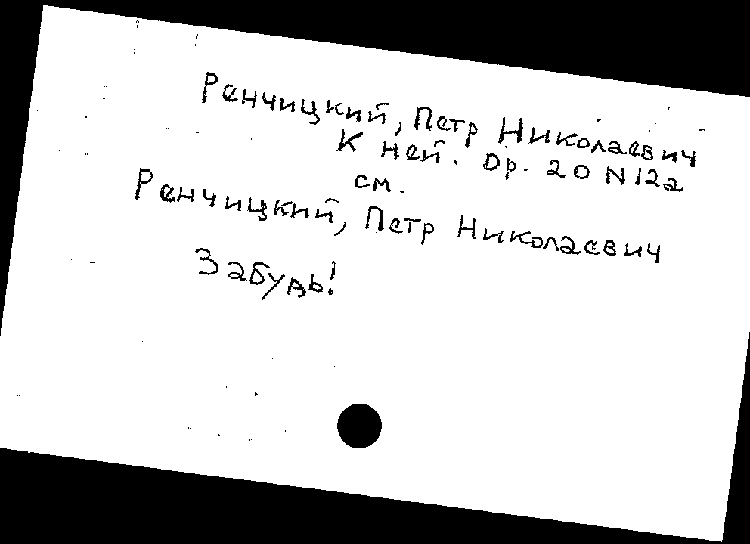 Ренчицкий, Петр Николаевич
К ней. Op. 20 N 12a
см.
Ренчицкий, Петр Николаевич
Забудь!